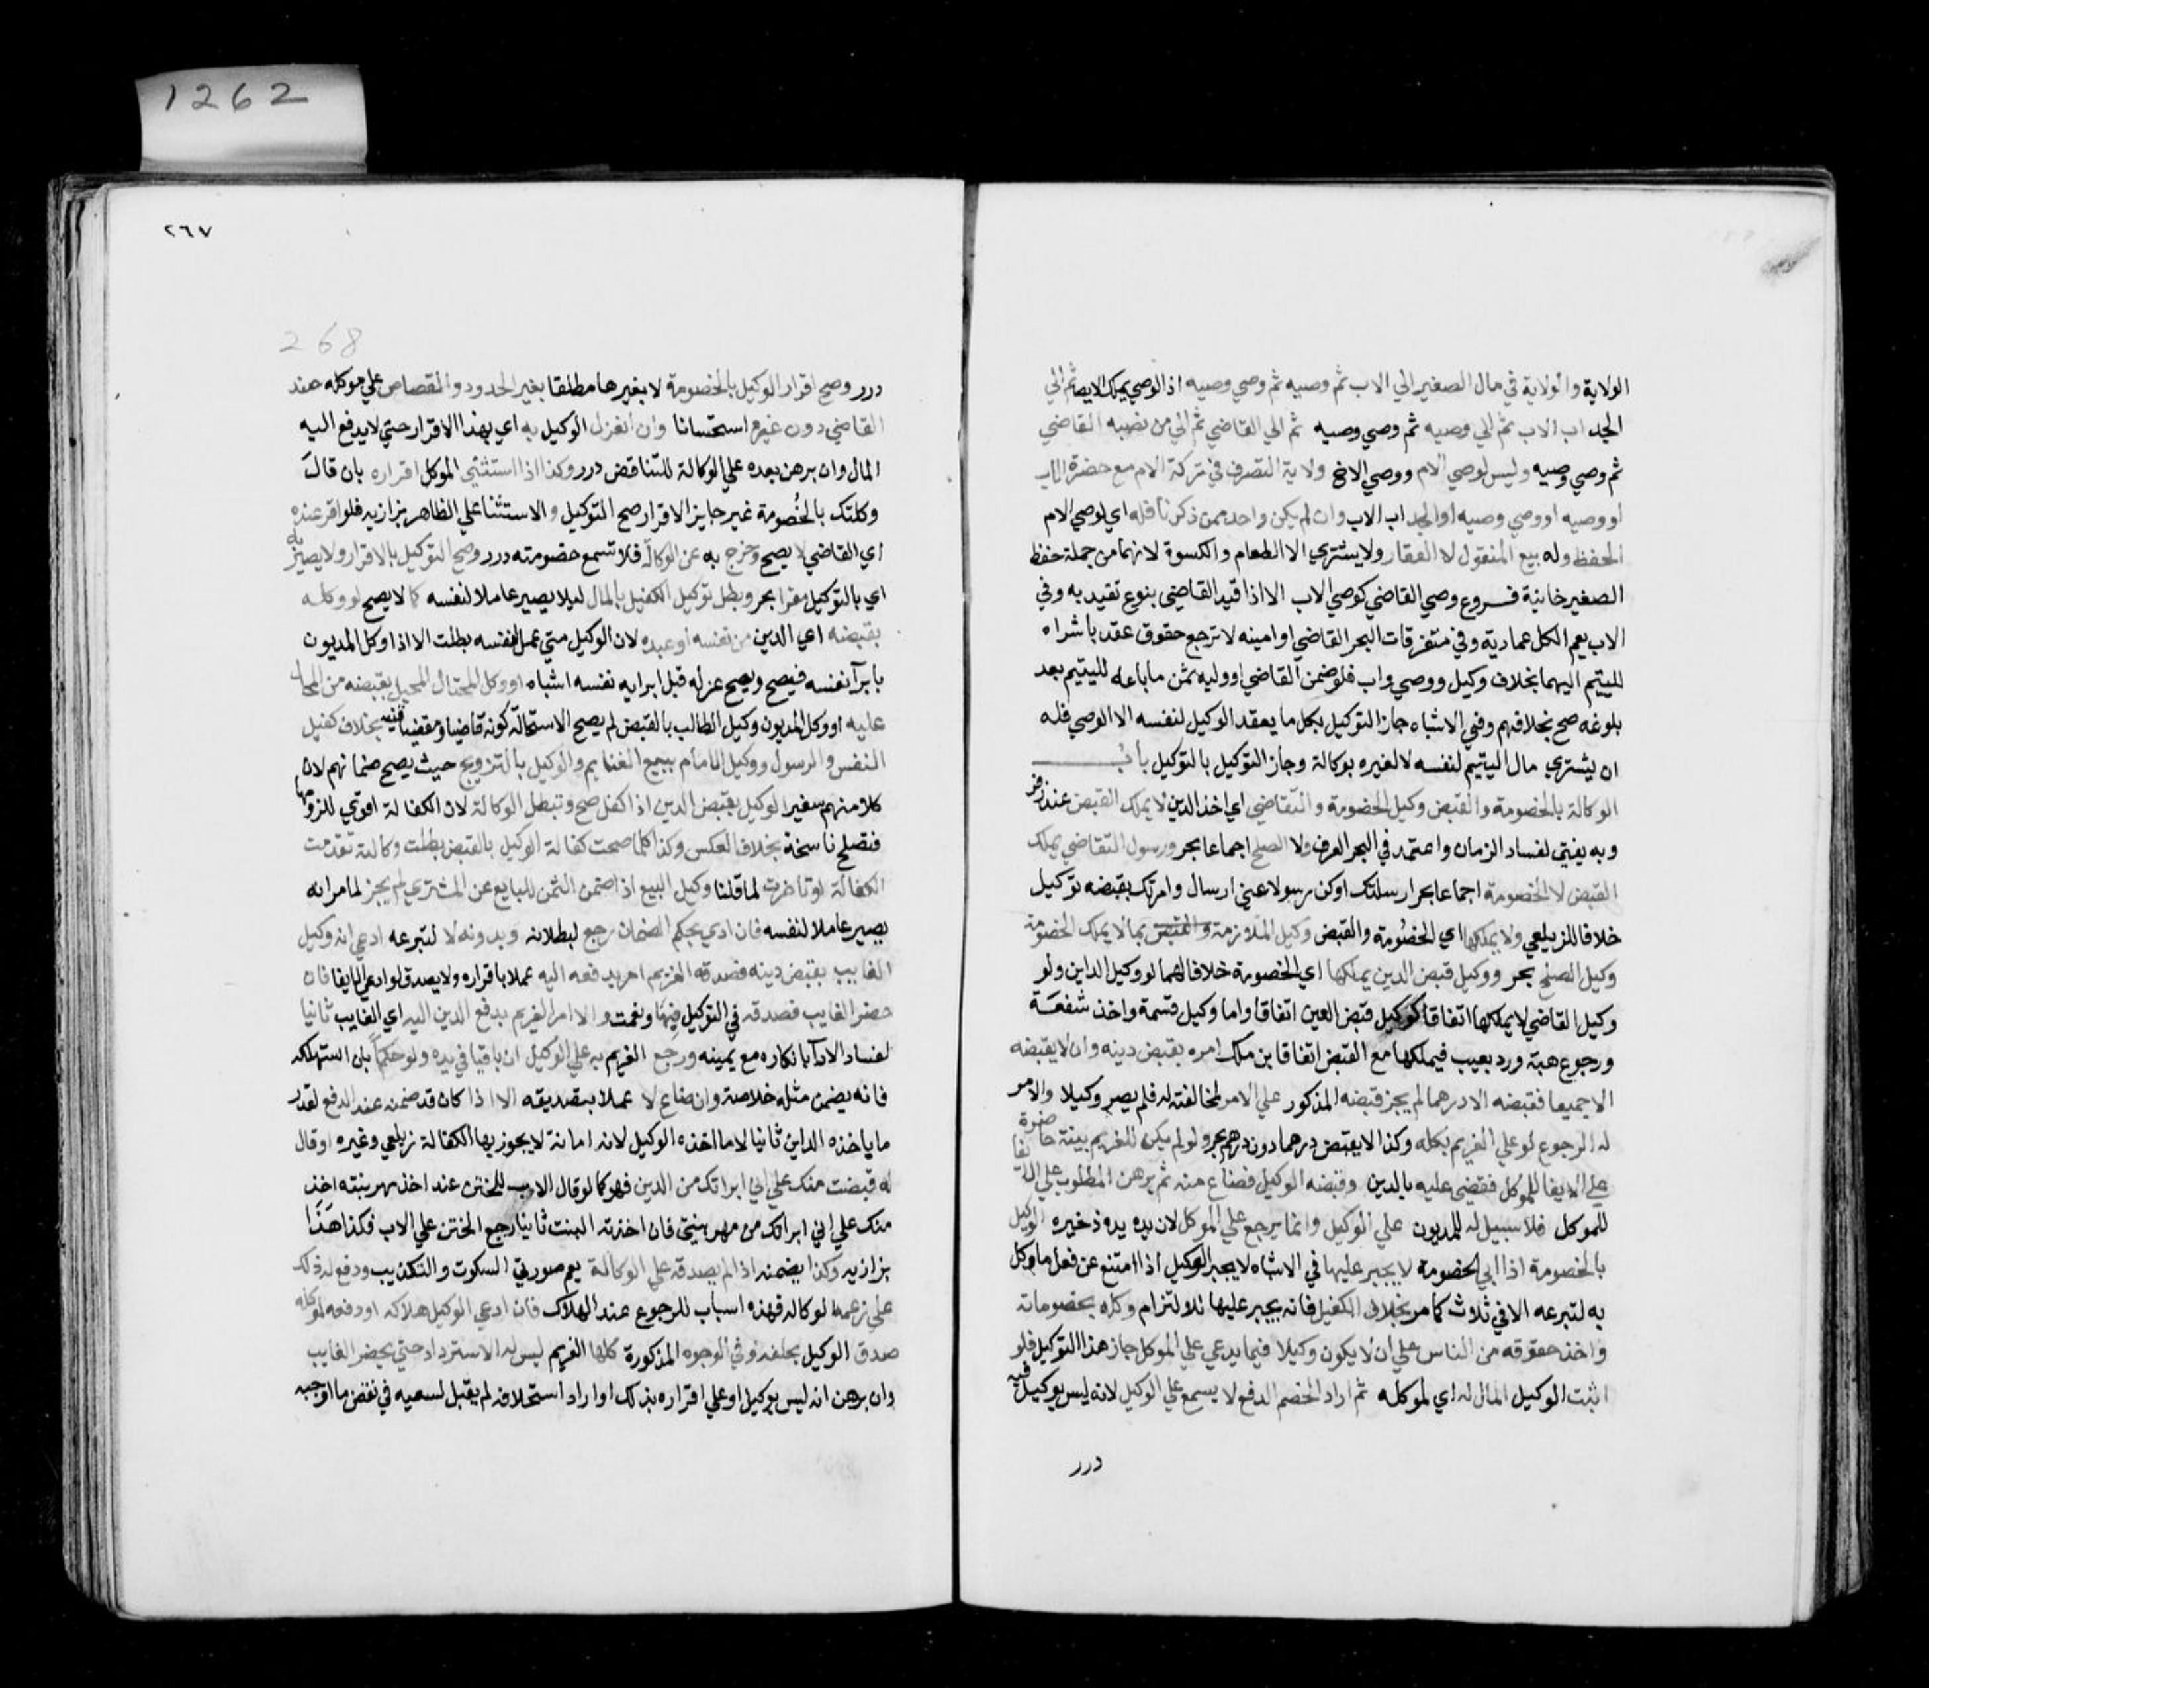 1262
الولاية والولاية في مال الصغير الي الاب ثم وصيه ثم وصي وصيه اذ الوصي يملك الايصا ثم الي
الجد اب الاب ثم الي وصيه ثم وصي وصيه ثم الي القاضي ثم الي من نصبه القاضي
ثم وصي وصيه وليس لوصي الام ووصي الاخ ولاية التصرف في تركة الام مع حضرة الاب
او وصيه او وصي وصيه او الجد اب الاب وان لم يكن واحد ممن ذكرنا فله اي لوصي الام
الحفظ وله بيع المنقول لا العقار ولا يشتري الا الطعام والكسوة لانهما من جملة حفظ
الصغير خانية فروع وصي القاضي كوصي الاب الا اذا قيد القاضي بنوع تقيد به وفي
الاب يعم الكل عمادية وفي متفرقات البحر القاضي او امينه لا ترجع حقوق عقد باشراه
لليتيم اليهما بخلاف وكيل ووصي واب فلو ضمن القاضي او وليه ثمن ما باعه لليتيم بعد
بلوغه صح بخلافهم وفي الاشباه جاز التوكيل بكل ما يعقد الوكيل لنفسه الا الوصي فله
ان يشتري مال اليتيم لنفسه لا لغيره بوكالة وجاز التوكيل بالتوكيل باب
الوكالة بالخصومة والقبض وكيل الخصومة والتقاضي اي اخذ الدين لا يملك القبض عند زفر
وبه يفتي لفساد الزمان واعتمد في البحر العرف ولا الصلح اجماعا بحر ورسول التقاضي يملك
القبض لا الخصومة اجماعا بحر ارسلتك او كن رسولا عني ارسال وامرتك بقبضه توكيل
خلافا للزيلعي ولا يملكها اي الخصومة والقبض وكيل الملازمة والقبض كما لا يملك الخصومة
وكيل الصلح بحر ووكيل قبض الدين يملكها اي الخصومة خلافا لهما لو وكيل الداين ولو
وكيل القاضي لا يملكها اتفاقا كوكيل قبض العين اتفاقا واما وكيل قسمة واخذ شفعة
ورجوع هبة ورد بعيب فيملكها مع القبض اتفاقا بن ملك امره بقبض دينه وان لا يقبضه
الا جميعا فقبضه الا درهما لم يجز قبضه المذكور علي الامر لمخالفته له فلم يصر وكيلا والامر
له الرجوع لو علي الغريم بكله وكذا لا يقبض درهما دون درهم بحر ولو لم يكن للغريم بينة حاضرة
علي الايفا للموكل فقضي عليه بالدين وقبضه الوكيل فضاع منه ثم برهن المطلوب علي الايفا
للموكل فلا سبيل له للمديون علي الوكيل وانما يرجع علي الموكل لان يده يده ذخيره الوكيل
بالخصومة اذا ابي الخصومة لا يجبر عليها في الاشباه لا يجبر الوكيل اذا امتنع عن فعل ما وكل
به لتبرعه الا في ثلاث كما مر بخلاف الكفيل فانه يجبر عليها للالتزام وكله بخصوماته
واخذ حقوقه من الناس علي ان لا يكون وكيلا فيما يدعي علي الموكل جاز هذا التوكيل فلو
اثبت الوكيل المال له اي لموكله ثم اراد الخصم الدفع لا يسمع علي الوكيل لانه ليس بوكيل فيه
درر
٢٦٧
268
درر وصح اقرار الوكيل بالخصومة لا بغيرها مطلقا بغير الحدود والقصاص علي موكله عند
القاضي دون غيره استحسانا وان انعزل الوكيل به اي بهذا الاقرار حتي لا يدفع اليه
المال وان برهن بعده علي الوكالة للتناقض درر وكذا اذا استثني الموكل اقراره بان قال
وكلتك بالخصومة غير جايز الاقرار صح التوكيل والاستثنا علي الظاهر بزازيه فلو اقر عنده
اي القاضي لا يصح وخرج به عن الوكالة فلا تسمع خصومته درر وصح التوكيل بالاقرار ولا يصير به
اي بالتوكيل مقرا بحر وبطل توكيل الكفيل بالمال ليلا يصير عاملا لنفسه كما لا يصح لو وكله
بقبضه اي الدين من نفسه او عبده لان الوكيل متي عمل لنفسه بطلت الا اذا وكل المديون
بابرآ نفسه فيصح ويصح عزله قبل ابرايه نفسه اشباه او وكل المحتال المحيل بقبضه من المحال
عليه او وكل المديون وكيل الطالب بالقبض لم يصح لاستحالة كونه قاضيا ومقتضيا قنيه بخلاف كفيل
النفس والرسول ووكيل الامام ببيع الغنايم والوكيل بالتزويج حيث يصح ضمانهم لان
كلا منهم سفير الوكيل بقبض الدين اذا كفل صح وتبطل الوكالة لان الكفالة اقوي للزومها
فتصلح ناسخة بخلاف العكس وكذا كلما صحت كفالة الوكيل بالقبض بطلت وكالته تقدمت
الكفالة او تاخرت لما قلنا وكيل البيع اذا ضمن الثمن للبايع عن المشتري لم يجز لما مر انه
يصير عاملا لنفسه فان ادي بحكم الضمان رجع لبطلانه وبدونه لا لتبرعه ادعي انه وكيل
الغايب بقبض دينه فصدقه الغريم امر بدفعه اليه عملا باقراره ولا يصدق لو ادعي الايفا فان
حضر الغايب فصدقه في التوكيل فبها ونعمت والا امر الغريم بدفع الدين اليه اي الغايب ثانيا
لفساد الادآ بانكاره مع يمينه ورجع الغريم به علي الوكيل ان باقيا في يده ولو حكما بان استهلكه
فانه يضمن مثله خلاصة وان ضاع لا عملا بتصديقه الا اذا كان قد ضمنه عند الدفع لقدر
ما ياخذه الداين ثانيا لا ما اخذه الوكيل لانه امانة لا يجوز بها الكفالة زيلعي وغيره او قال
له قبضت منك علي اني ابراتك من الدين فهو كما لو قال الاب للختن عند اخذ مهر بنته اخذ
منك علي اني ابراتك من مهر بنتي فان اخذته البنت ثانيا رجع الختن علي الاب فكذا هذا
بزازيه وكذا يضمنه اذا لم يصدقه علي الوكالة يعم صورتي السكوت والتكذيب ودفع له ذلك
علي زعمه الوكالة فهذه اسباب للرجوع عند الهلاك فان ادعي الوكيل هلاكه او دفعه لموكله
صدق الوكيل بحلفه وفي الوجوه المذكورة كلها الغريم ليس له الاسترداد حتي يحضر الغايب
وان برهن انه ليس بوكيل او علي اقراره بذلك او اراد استحلافه لم يقبل لسعيه في نقض ما اوجبه